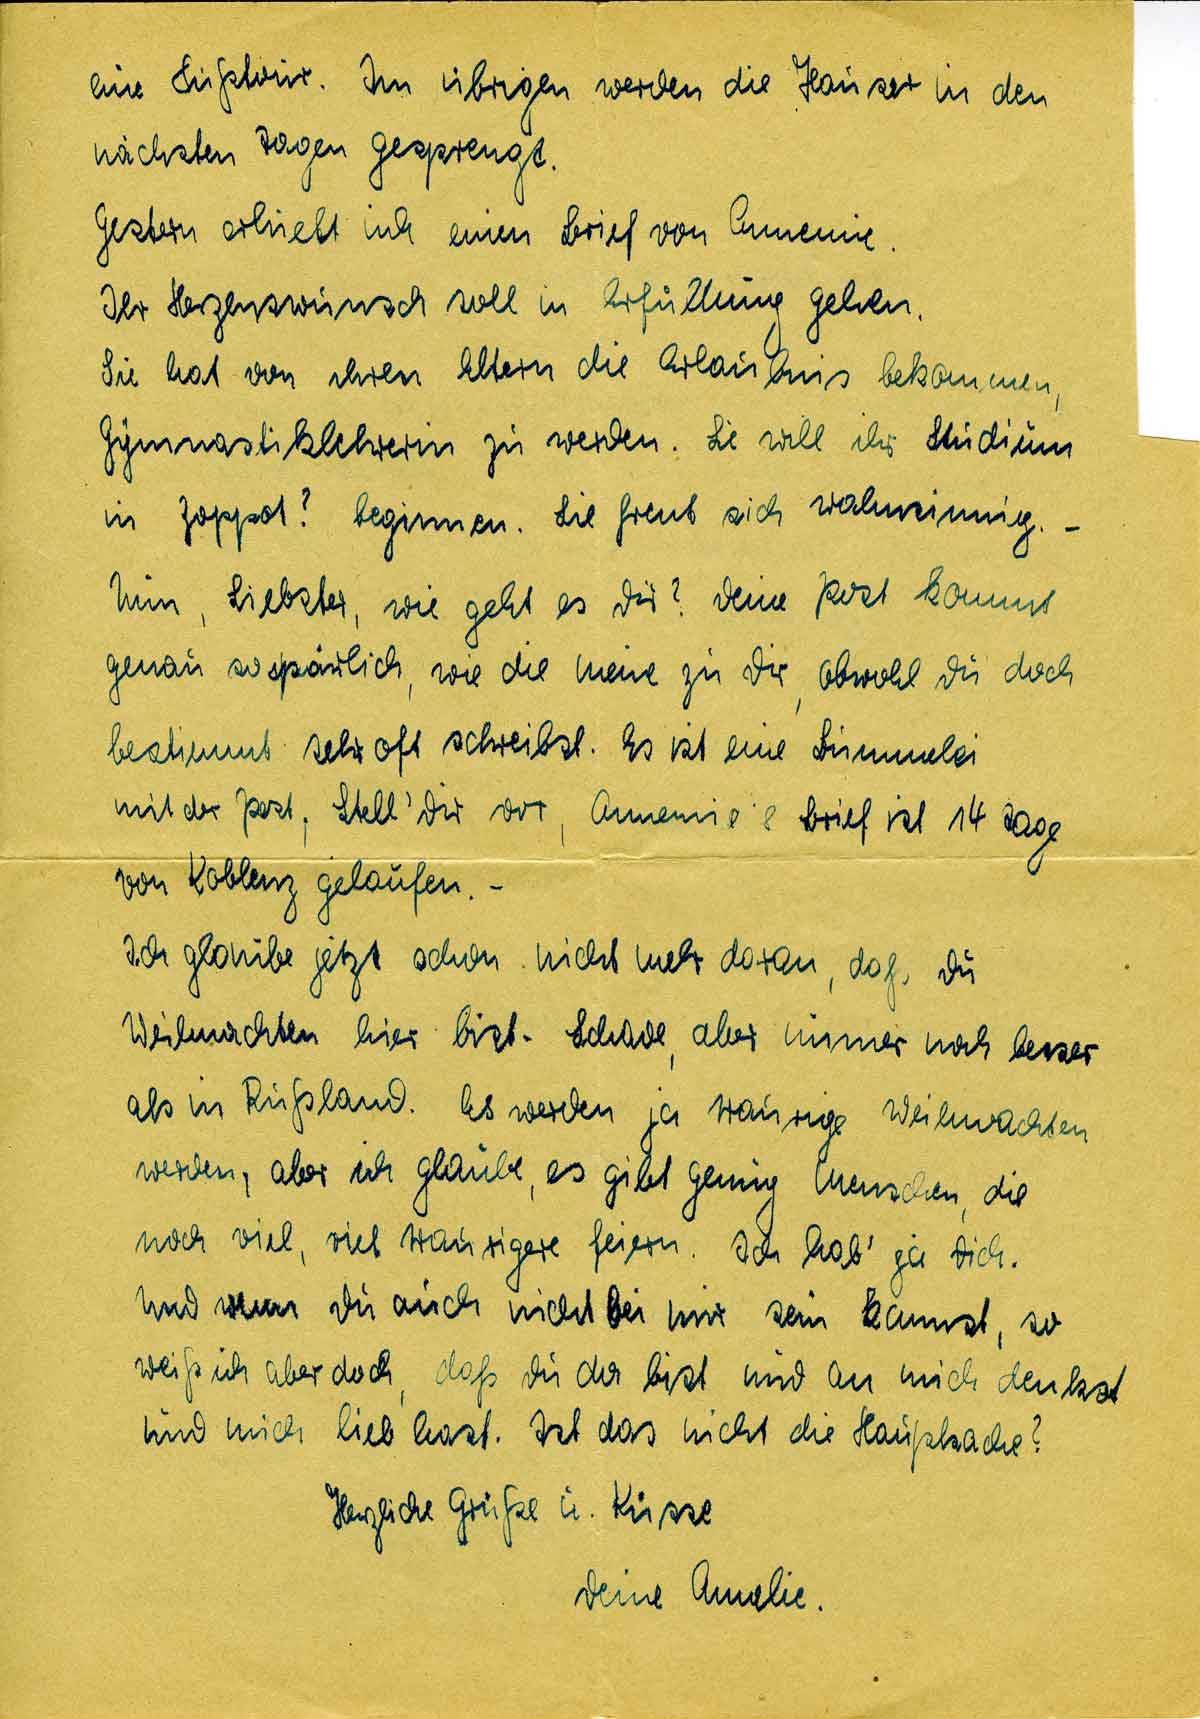 eine Luftwur. Im übrigen werden die Häuser in den
nächsten Tagen gesprengt.
Gestern erhielt ich einen Brief von Annemie.
Ihr Herzenswunsch soll in Erfüllung gehen.
Sie hat von ihren Eltern die Erlaubnis bekommen,
Gymnastiklehrerin zu werden. Sie will ihr Studium
in Zoppot? beginnen. Sie freut sich wahnsinnig. -
Nun, Liebster, wie geht es Dir? Deine Post kommt
genau so spärlich, wie die meine zu Dir, obwohl Du doch
bestimmt sehr oft schreibst. Es ist eine Bummelei
mit der Post. Stell' Dir vor, Annemie's Brief ist 14 Tage
von Koblenz gelaufen. -
Ich glaube jetzt schon nicht mehr daran, daß Du
Weihnachten hier bist. Schade, aber immer noch besser
als in Rußland. Es werden ja traurige Weihnachten
werden, aber ich glaube, es gibt genug Menschen, die
noch viel, viel traurigere feiern. Ich hab' ja Dich.
Und wenn Du auch nicht bei mir sein kannst, so
weiß ich aber doch, daß Du da bist und an mich denkst
und mich lieb hast. Ist das nicht die Hauptsache?
Herzliche Grüße u. Küsse
Deine Amelie.